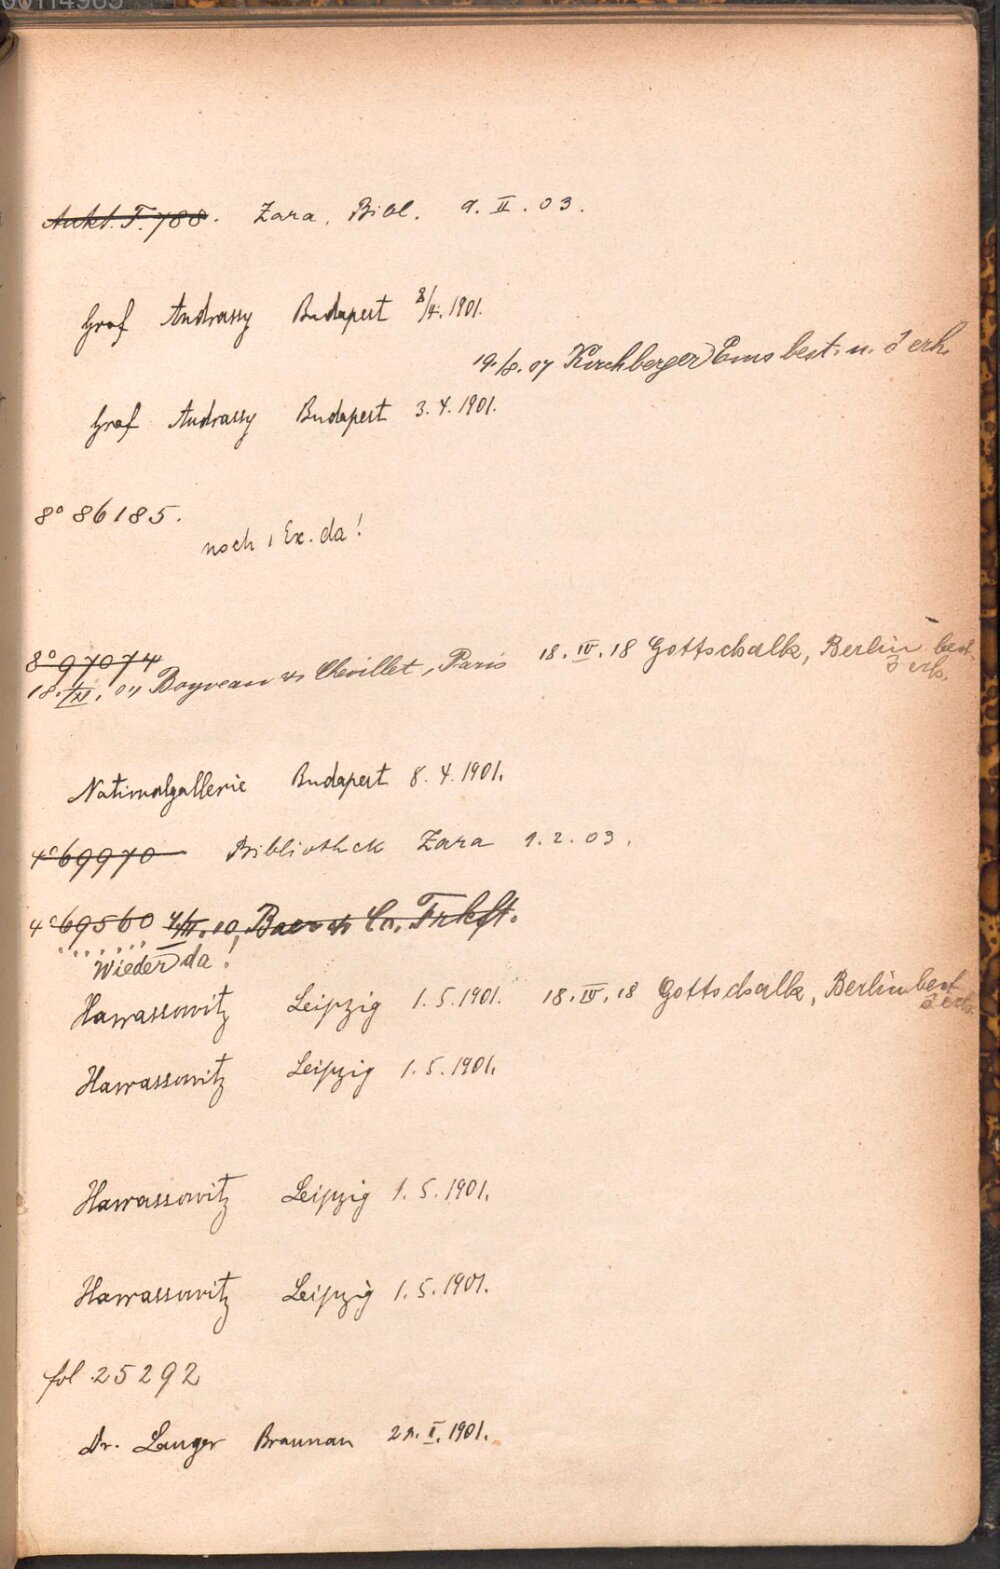 00114983
Aukt. F. 788. Zara, Bibl. 9. II. 03.
Graf Andrassy Budapest 8/4. 1901.
19./8. 07 Kirchberger Ems best. u. erh.
Graf Andrassy Budapest 3. 4. 1901.
8° 86185.
noch 1 Ex. da!
8° 97074
18./XI. 04 Boyveau & Chevillet, Paris 18. IV. 18 Gottschalk, Berlin best.
erh.
Nationalgallerie Budapest 8. 4. 1901.
4° 69970 Bibliothek Zara 9. 2. 03.
4° 69560 10, Baer & Co. Frkft.
Wieder da!
Harrassowitz Leipzig 1. 5. 1901. 18. IV. 18 Gottschalk, Berlin best
erh.
Harrassowitz Leipzig 1. 5. 1901.
Harrassowitz Leipzig 1. 5. 1901.
Harrassowitz Leipzig 1. 5. 1901.
fol. 25292
Dr. Langer Braunau 1901.